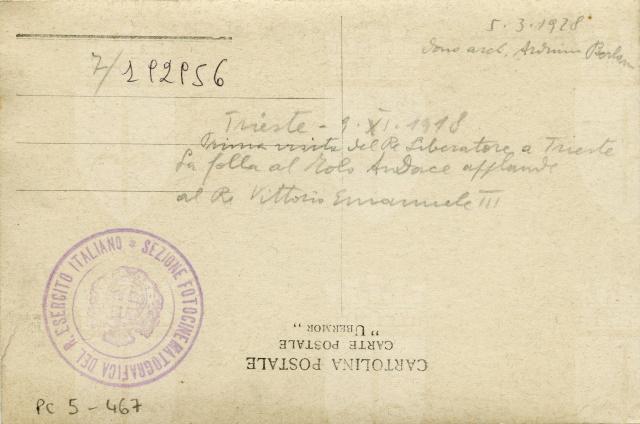 5.3.1928
dono arch. Arduino Berlam
7/292956
Trieste - 9.XI.1918
Prima visita del Re Liberatore a Trieste
La folla al Molo Audace applaude
al Re Vittorio Emanuele III
SEZIONE FOTOCINEMATOGRAFICA DEL R. ESERCITO ITALIANO
CARTOLINA POSTALE
CARTE POSTALE
"UBERMOR"
PC 5-467